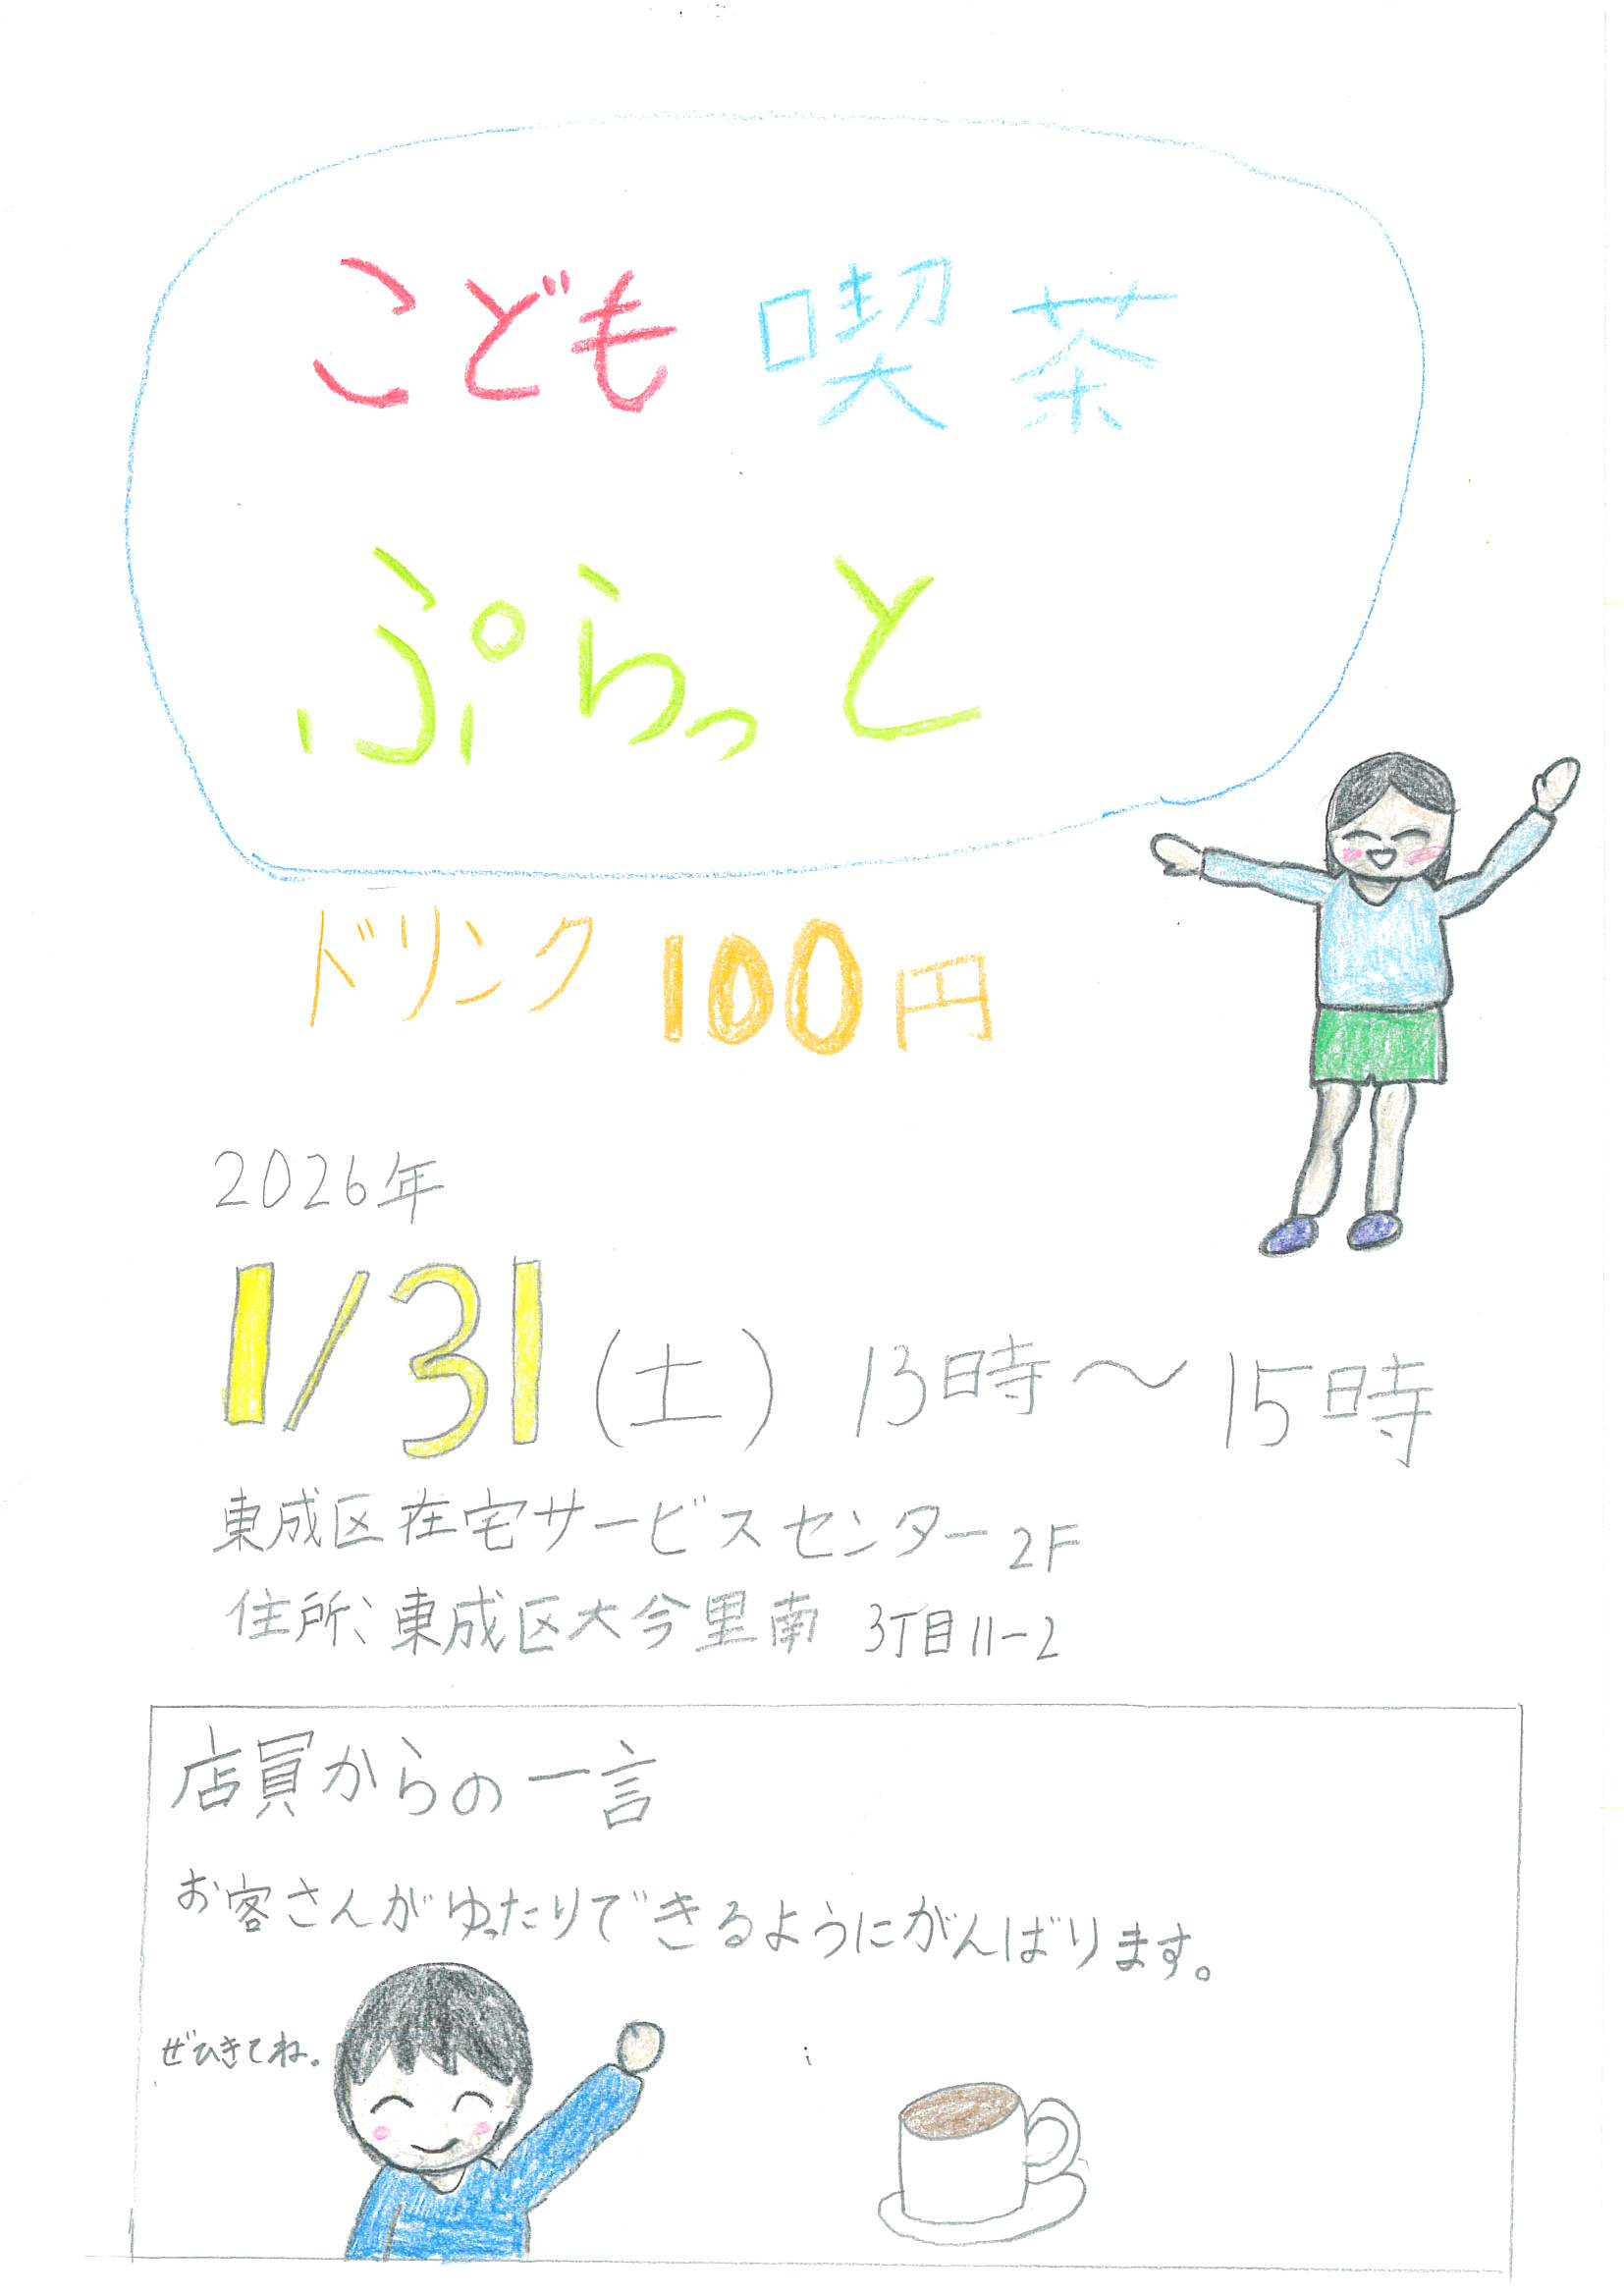 こども喫茶
ぷらっと
ドリンク100円
2026年
1/31(土) 13時～15時
東成区在宅サービスセンター2F
住所:東成区大今里南 3丁目11-2
店員からの一言
お客さんがゆったりできるようにがんばります。
ぜひきてね。